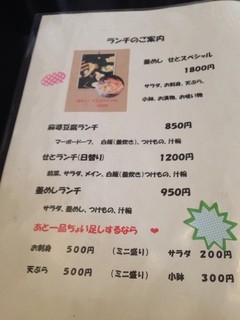 ランチのご案内
釜めし せとスペシャル
1800円
サラダ、お刺身、天ぷら、
小鉢、お漬物、お吸い物
麻婆豆腐ランチ 850円
マーボードーフ、白飯(釜炊き)つけもの、汁椀
せとランチ(日替り) 1200円
前菜、サラダ、メイン、白飯(釜炊き)つけもの、汁椀
釜めしランチ 950円
サラダ、釜めし、つけもの、汁椀
あと一品ちょい足しするなら ♥
お刺身 500円 (ミニ盛り) サラダ 200円
天ぷら 500円 (ミニ盛り) 小鉢 300円